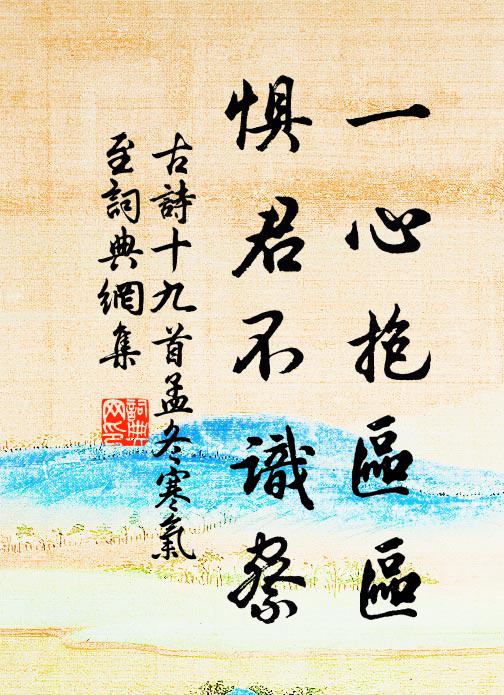 一心抱區區
惧君不識察
古詩十九首孟冬寒氣
至詞典網集
詞典
网印